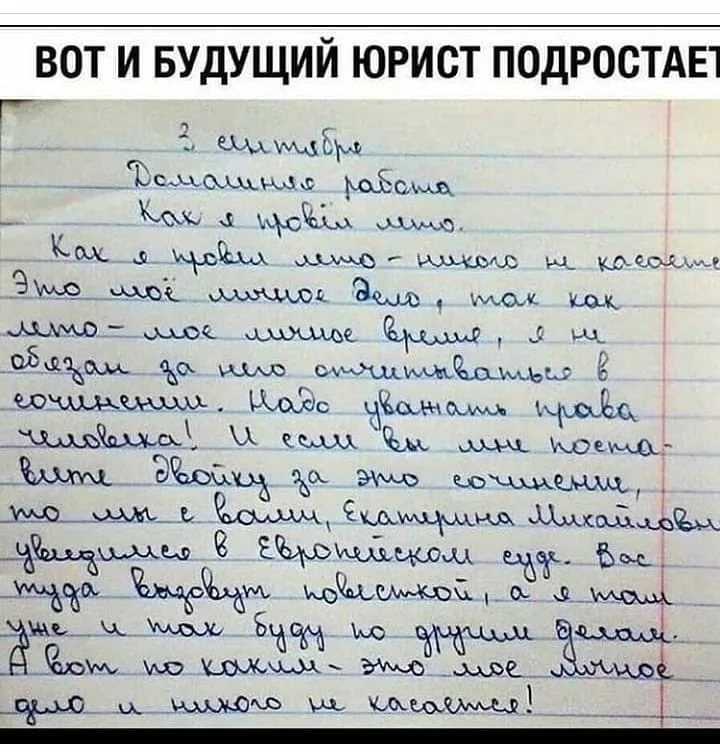 ВОТ И БУДУЩИЙ ЮРИСТ ПОДРОСТАЕТ
3 сентября
Домашняя работа
Как я провёл лето.
Как я провёл лето - никого не касается
Это моё личное дело, так как
лето - моё личное время, я не
обязан за него отчитываться в
сочинении. Надо уважать права
человека! И если вы мне поста-
вите двойку за это сочинение,
то мы с вами, Екатерина Михайловна
увидимся в Европейском суде. Вас
туда вызовут повесткой, а я там
уже и так буду по другим делам.
А вот по каким - это моё личное
дело и никого не касается!